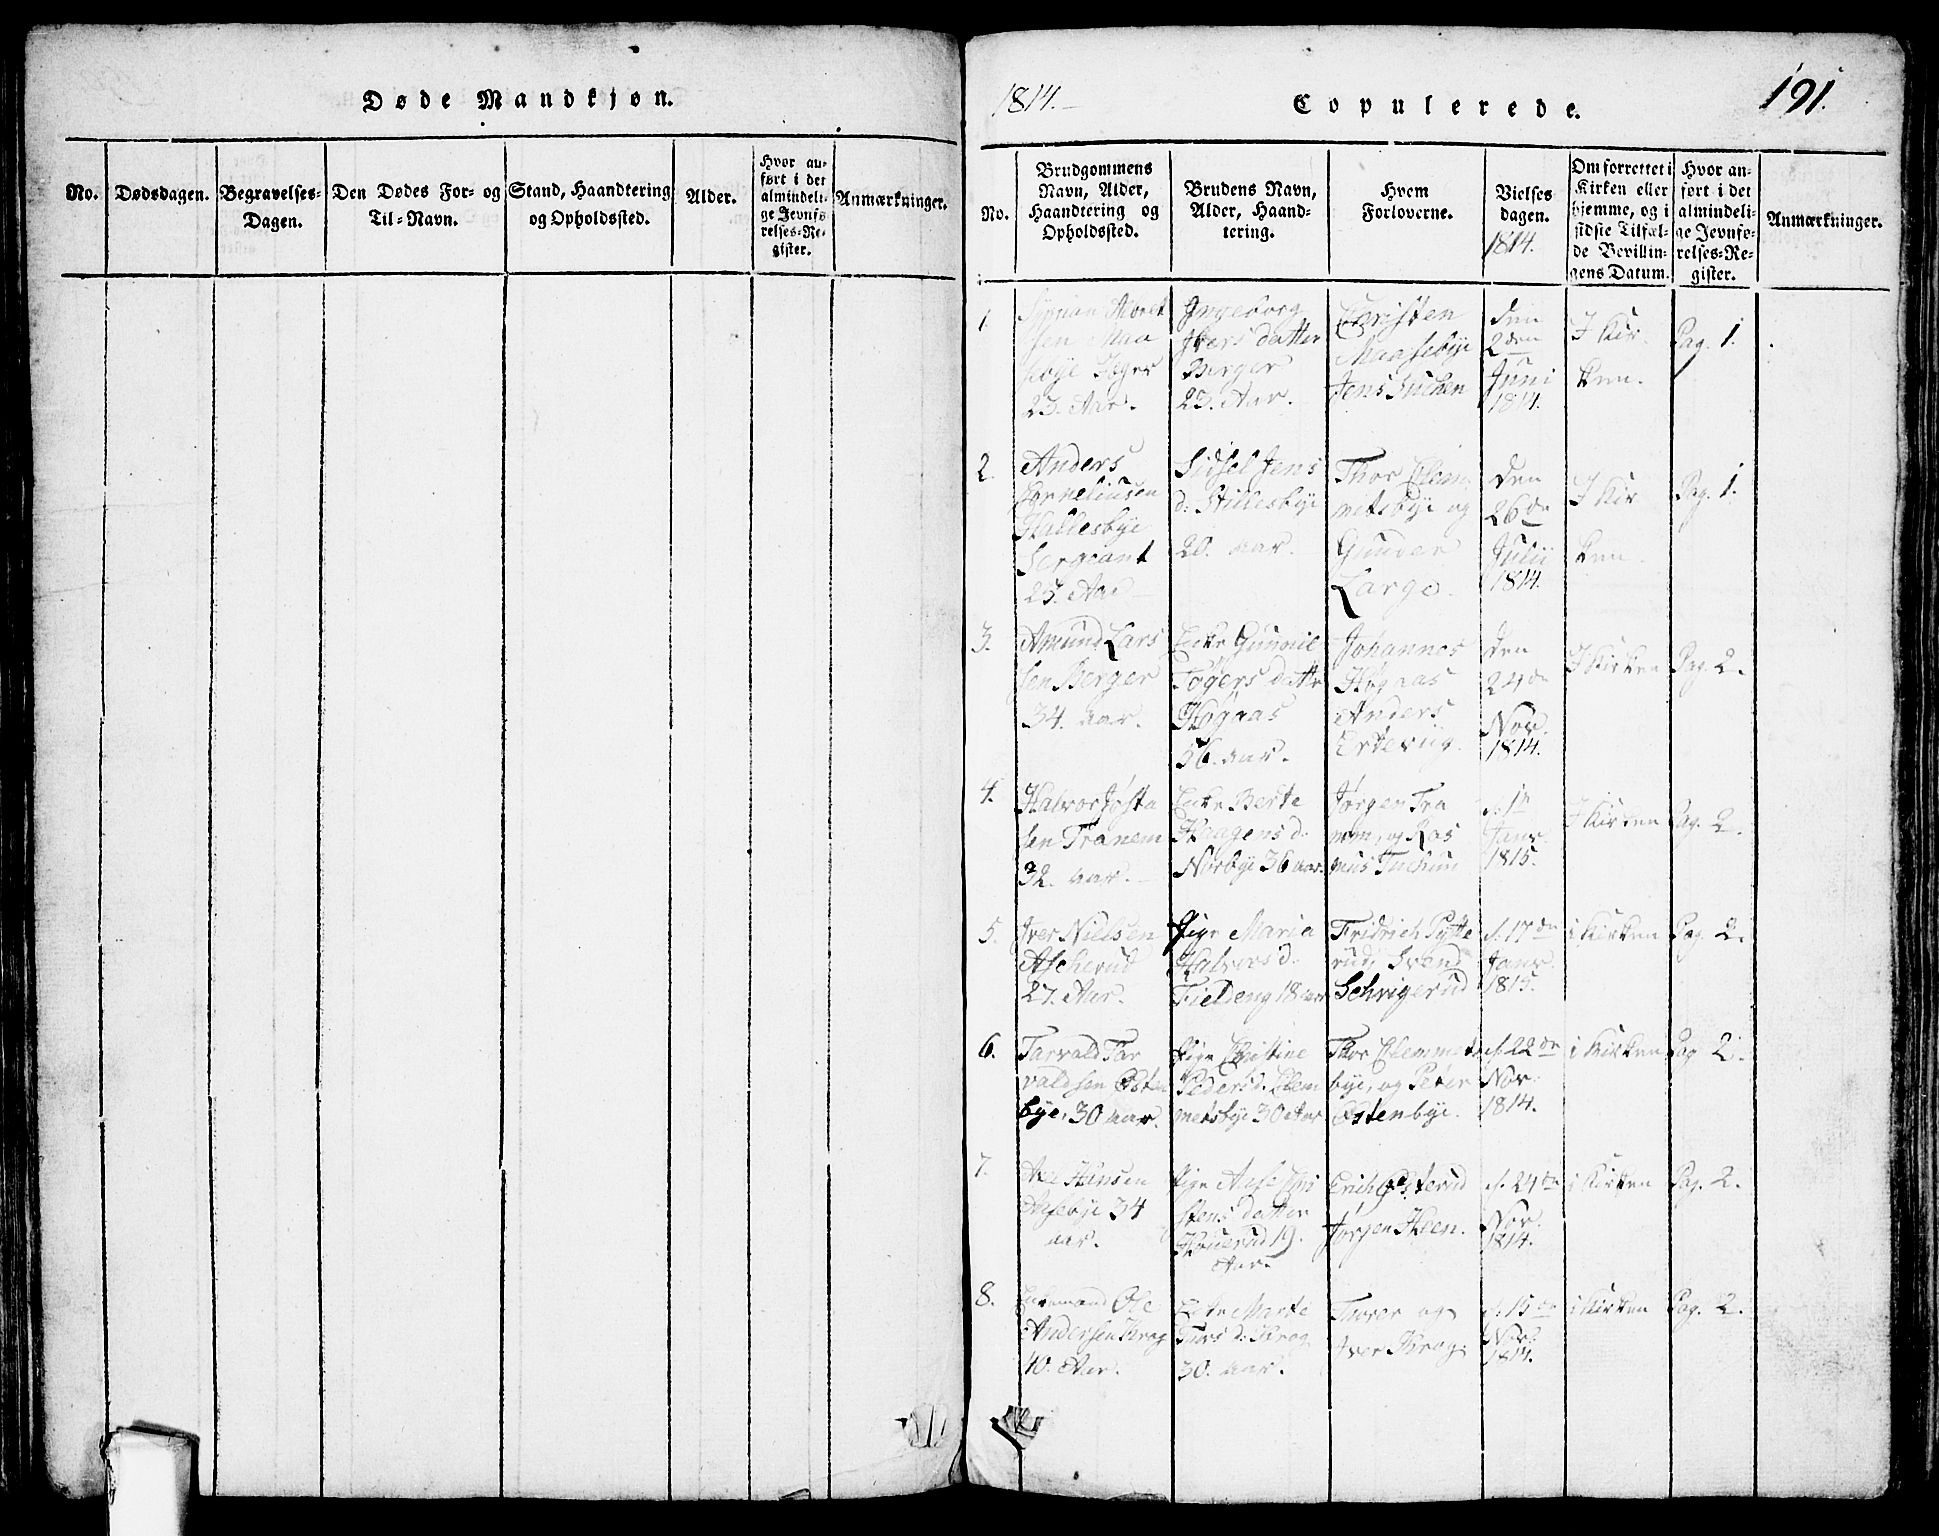 Døde Mandkjøn.
No.
Dødsdagen.
Begravelses-
Dagen.
Den Dødes For- og
Til-Navn.
Stand, Haandtering
og Opholdssted.
Alder.
Hvor an-
ført i det
almindeli-
ge Jevnfø-
relses-Re-
gister.
Anmærkninger.
1814.
Copulerede.
191.
No.
Brudgommens
Navn, Alder,
Haandtering og
Opholdssted.
Brudens Navn,
Alder, Haand-
tering.
Hvem
Forloverne.
Vielses
dagen.
1814.
Om forrettet i
Kirken eller
hjemme, og i
sidste Tilfæl-
de Bevillin-
gens Datum.
Hvor an-
ført i det
almindeli-
ge Jevnfø-
relses-Re-
gister.
Anmærkninger.
1.
sen
23. Aar.
Ingeborg
Iversdatter
Berger
23. Aar.
Christen
Maasebye
Jens
den
2den
Juni
1814.
I Kir-
ken.
Pag. 1.
2.
Anders
Corneliusen
Haldesbye
Sergeant
25. Aar
Sidsel Jens
d:
20. aar.
Thor Clem-
metsbye og
Gunder
Large.
den
26de
Julij
1814.
I Kir
ken.
Pag. 1.
3.
Amund Lars
sen Berger
34. aar.
Enke Gunnil
Togers datter
Høgnas
56. aar.
Johannes
Høgnas
Anders
Ertevig.
den
24de
Nov.
1814.
I Kirken
Pag. 2.
4.
Halvor Josta
sen Tranem
32. aar.
Enke Berte
Haagens d.
Norbye 36 aar.
Jørgen Tra
nem, og Ras
mus
d. 1n
Janr.
1815.
I Kirken
Pag. 2.
5.
Iver Nielsen
Ascherud
27. Aar.
Pige Maria
Halvors d.
Fieldeng 18 aar
Fridrich Pytte
rud, Svend
Schvigerud
d. 17de
Janr.
1815.
i Kirken
Pag. 2.
6.
Tarvald Tar
valdsen Østen
bye, 30 aar.
Pige Christine
Peders d. Clem
metsbye 30 Aar
Thor Clemmets
bye, og Peter
Østenbye.
d. 22de
Nov.
1814.
i Kirken
Pag. 2.
7.
Hansen
Aasebye 34
aar.
Pige Chri
stens datter
19.
Aar.
Erich Østerud
Jørgen Heen.
d. 24de
Nov.
1814.
i Kirken
Pag. 2.
8.
Enkemand Ole
Andersen Krog
40. Aar.
Enke Marte
d: Krog
30. aar.
Thorer og
Iver Krog.
d. 15de
Nov.
1814.
i Kirken
Pag. 2.